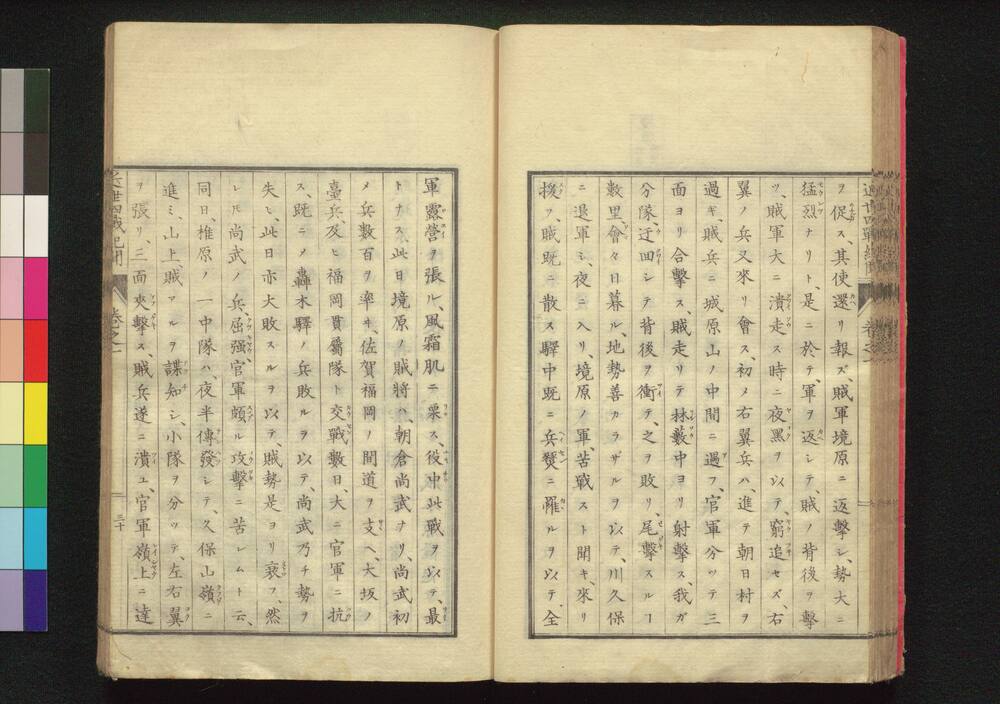 ヲ促ス、其使還リ報ズ、賊軍境原ニ返擊シ、勢大ニ
猛烈ナリト、是ニ於テ、軍ヲ返シテ、賊ノ背後ヲ擊
ツ、賊軍大ニ潰走ス時ニ夜黑ヲ以テ、窮追セズ、右
翼ノ兵又來リ會ス、初メ右翼兵ハ、進テ朝日村ヲ
過ギ、賊兵ニ城原山ノ中間ニ遇フ、官軍分ツテ三
面ヨリ合擊ス、賊走リテ林藪中ヨリ射擊ス、我ガ
分隊迂回シテ背後ヲ衝テ、之ヲ敗リ、尾擊スルヿ
數里、會々日暮ル、地勢善カラザルヲ以テ、川久保
ニ退軍シ、夜ニ入リ、境原ノ軍、苦戰スト聞キ、來リ
援フ、賊既ニ散ス驛中既ニ兵燹ニ罹ルヲ以テ、全
軍露營ヲ張ル、風霜肌ニ粟ス、役中此戰ヲ以テ、最
トナス、此日境原ノ賊將ハ、朝倉尚武ナリ、尚武初
メ兵數百ヲ率ヰ、佐賀福岡ノ間道ヲ支ヘ、大坂ノ
臺兵、及ヒ福岡貫屬隊ト交戰數日、大ニ官軍ニ抗
ス、既ニメ轟木驛ノ兵敗ルヲ以テ、尚武乃チ勢ヲ
失ヒ、此日亦大敗スルヲ以テ、賊勢是ヨリ衰フ、然
レ𪜈尚武ノ兵、屈强、官軍頗ル攻擊ニ苦シムト云、
同日、椎原ノ一中隊ハ、夜半傳發シテ、久保山嶺ニ
進ミ、山上賊アルヲ諜知シ、小隊ヲ分ツテ、左右翼
ヲ張リ、三面夾擊ス、賊兵遂ニ潰ユ、官軍嶺上ニ達
近世四戰紀聞
卷之一
三十